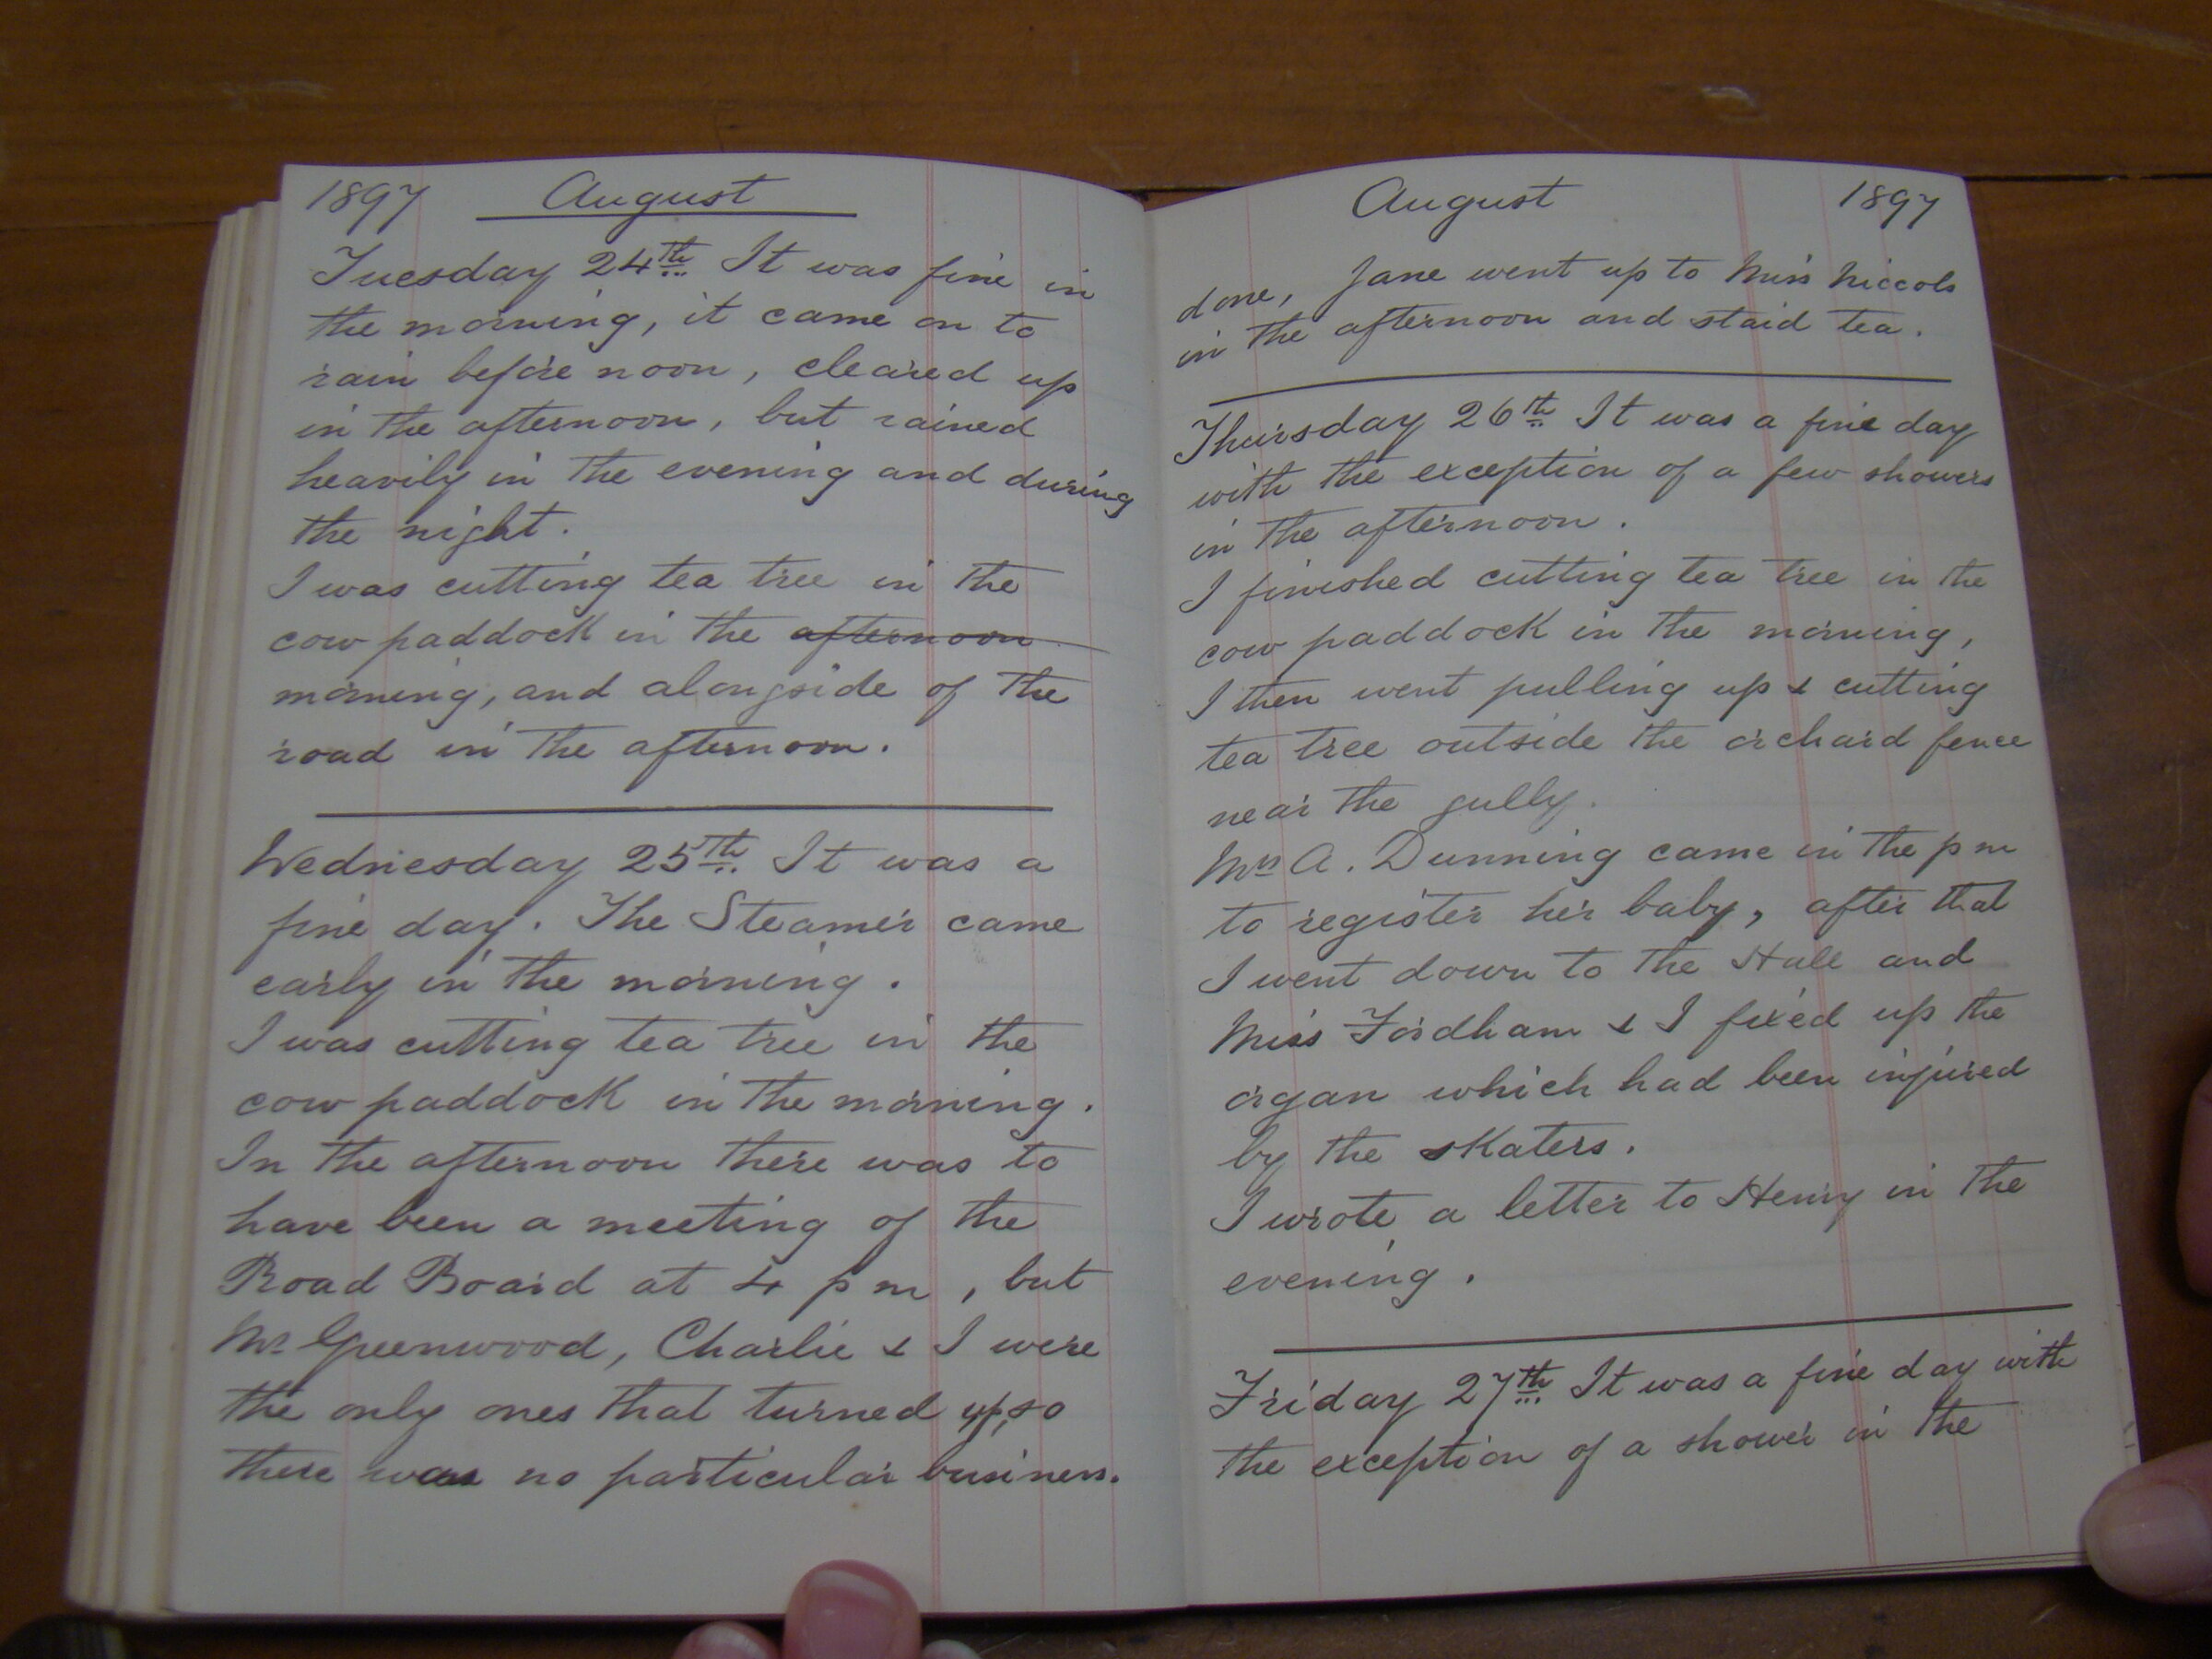 1897 August
Tuesday 24th It was fine in
the morning, it came on to
rain before noon, cleared up
in the afternoon, but rained
heavily in the evening and during
the night.
I was cutting tea tree in the
cow paddock in the afternoon
morning, and alongside of the
road in the afternoon.
Wednesday 25th It was a
fine day. The Steamer came
early in the morning.
I was cutting tea tree in the
cow paddock in the morning.
In the afternoon there was to
have been a meeting of the
Road Board at 4 pm, but
Mr Greenwood, Charlie & I were
the only ones that turned up, so
there was no particular business.
August 1897
done, Jane went up to Miss Niccols
in the afternoon and staid tea.
Thursday 26th It was a fine day
with the exception of a few showers
in the afternoon.
I finished cutting tea tree in the
cow paddock in the morning,
I then went pulling up & cutting
tea tree outside the orchard fence
near the gully.
Mrs A. Dunning came in the pm
to register her baby, after that
I went down to the Hall and
Miss Fordham & I fixed up the
organ which had been injured
by the skaters.
I wrote a letter to Henry in the
evening.
Friday 27th It was a fine day with
the exception of a shower in the